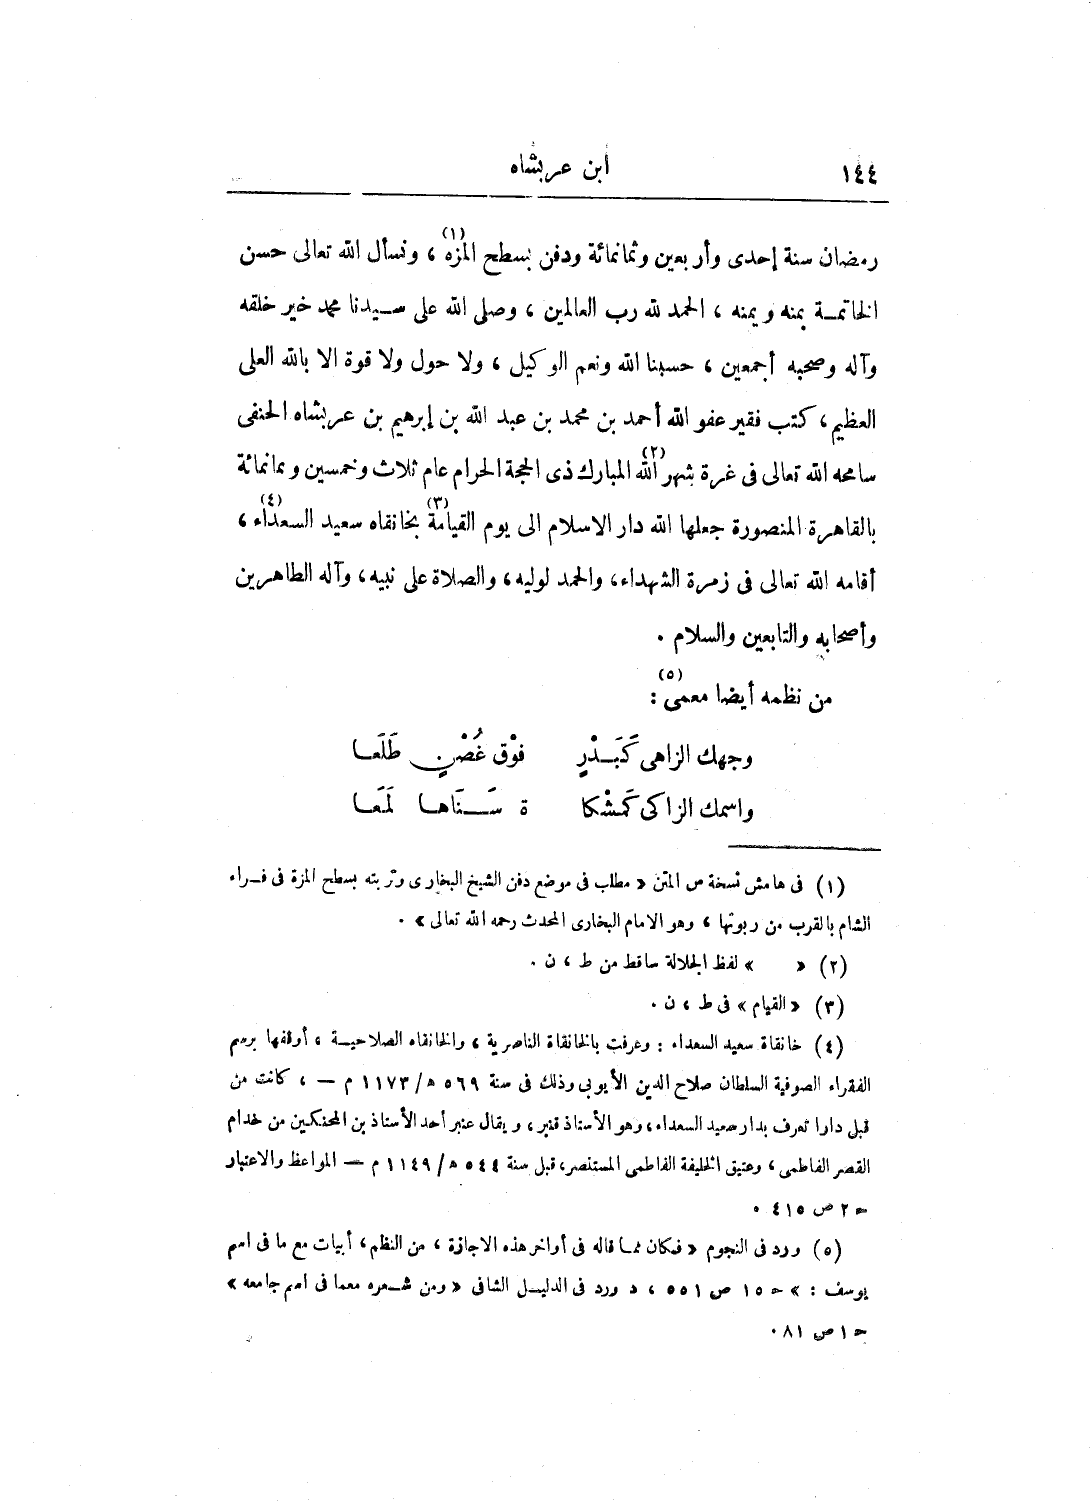 ١٤٤
ابن عربشاه
رمضان سنة إحدى وأربعين وثمانمائة ودفن بسطح المزه (١) ، ونسأل الله تعالى حسن
الخاتمــة بمنه ويمنه ، الحمد لله رب العالمين ، وصلى الله على سـيدنا محمد خير خلقه
وآله وصحبه أجمعين ، حسبنا الله ونعم الوكيل ، ولا حول ولا قوة الا بالله العلى
العظيم ، كتب فقير عفو الله أحمد بن محمد بن عبد الله بن إبرهيم بن عربشاه الحنفى
سامحه الله تعالى فى غرة شهر الله (٢) المبارك ذى الحجة الحرام عام ثلاث وخمسين وثمانمائة
بالقاهرة المنصورة جعلها الله دار الاسلام الى يوم القيامة (٣) بخانقاه سعيد السعداء (٤) ،
أقامه الله تعالى فى زمرة الشهداء ، والحمد لوليه ، والصلاة على نبيه ، وآله الطاهرين
وأصحابه والتابعين والسلام .
من نظمه أيضا معمى (٥) :
وجهك الزاهى كَبَــدْرٍ فوْق غُصْنٍ طَلَعـا
واسمك الزاكى كَمشْكا ة سَــنَاهـا لَمَعَـا
(١) فى هامش نسخة ص المتن « مطلب فى موضع دفن الشيخ البخارى وتربته بسطح المزة فى قـراء
الشام بالقرب من ربوتها ، وهو الامام البخارى المحدث رحمه الله تعالى » .
(٢) « » لفظ الجلالة ساقط من ط ، ن .
(٣) « القيام » فى ط ، ن .
(٤) خانقاة سعيد السعداء : وعرفت بالخانقاة الناصرية ، والخانقاه الصلاحيـة ، أوقفها برسم
الفقراء الصوفية السلطان صلاح الدين الأيوبى وذلك فى سنة ٥٦٩ ه/ ١١٧٣ م – ، كانت من
قبل دارا تعرف بدار سعيد السعداء ، وهو الأستاذ قنبر ، ويقال عنبر أحد الأستاذ بن المحنكين من خدام
القصر الفاطمى ، وعتيق الخليفة الفاطمى المستنصر ، قبل سنة ٥٤٤ ه/ ١١٤٩ م – المواعظ والاعتبار
ح ٢ ص ٤١٥ .
(٥) ورد فى النجوم « فكان ممـا قاله فى أواخر هذه الاجازة ، من النظم ، أبيات مع ما فى اسم
يوسف : » ح ١٥ ص ٥٥١ ، د ورد فى الدليــل الشافى « ومن شــعره معما فى اسم جامعه »
ح ١ ص ٨١ .